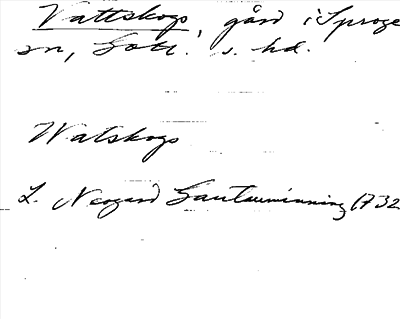 Vattskogs, gård i Sproge
sn, Gotl. s. hd.
Watskogs
L. Neogard Gautauminning 1732